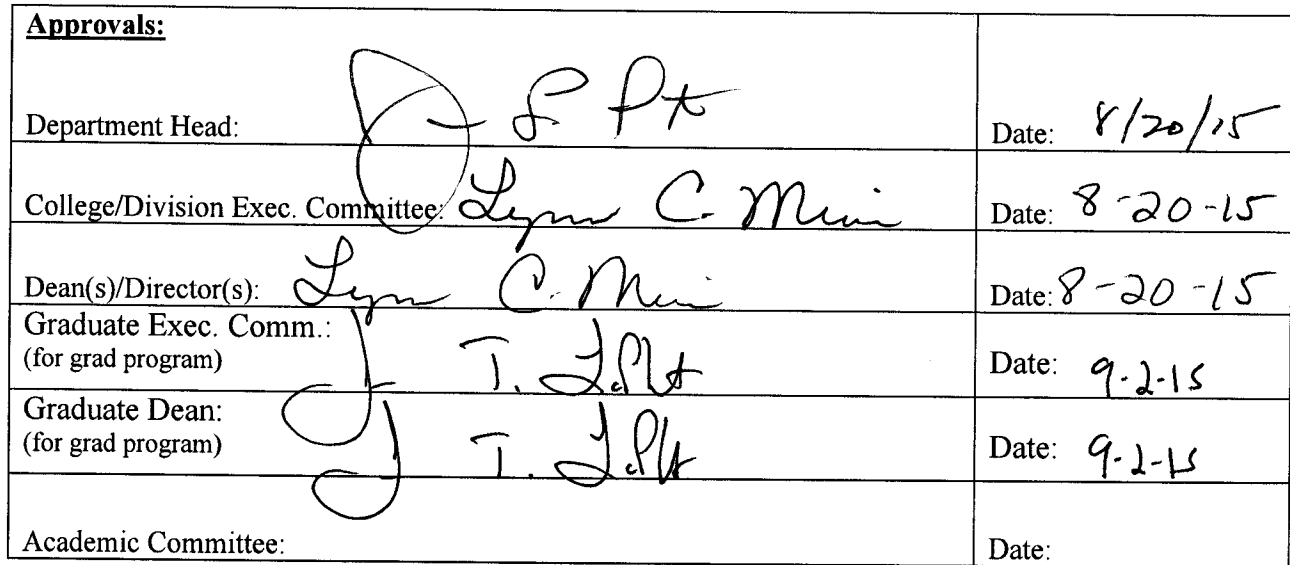 Approvals:
Department Head: Date: 8/20/15
College/Division Exec. Committee: Lynn C. Date: 8-20-15
Dean(s)/Director(s): Lynn C. Date: 8-20-15
Graduate Exec. Comm.:
(for grad program) J T. Date: 9-2-15
Graduate Dean:
(for grad program) J T. Date: 9-2-15
Academic Committee: Date: